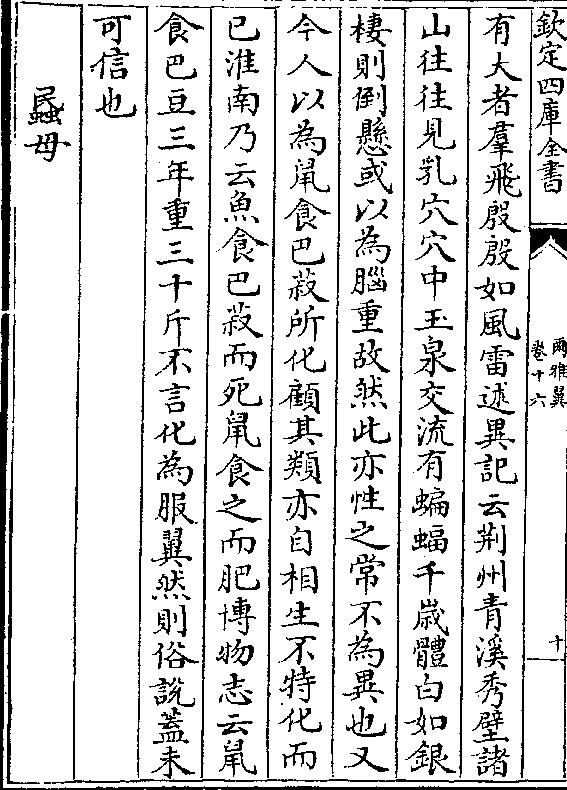 欽定四庫全書
爾雅翼
卷十六
十
有大者羣飛殷殷如風雷述異記云荆州青溪秀壁諸
山往往見乳穴穴中玉泉交流有蝙蝠千歳體白如銀
棲則倒懸或以為腦重故然此亦性之常不為異也又
今人以為鼠食巴菽所化顧其類亦自相生不特化而
已淮南乃云魚食巴菽而死鼠食之而肥博物志云鼠
食巴豆三年重三十斤不言化為服翼然則俗說蓋未
可信也
蟁母